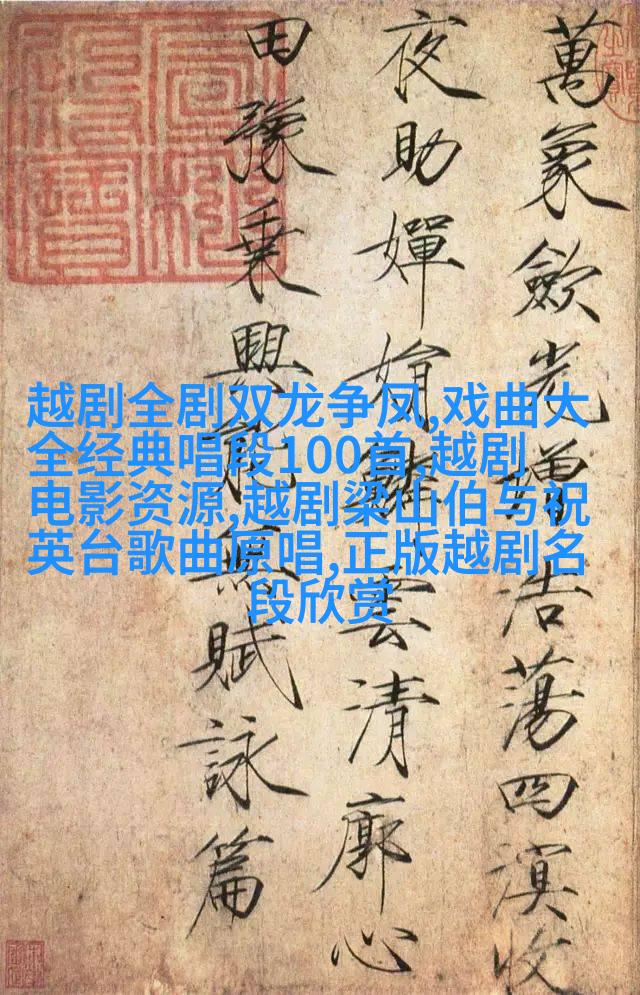 萬象斂光增浩蕩四溟收
夜助嬋娟鱗雲清廓心
田豫乗興能無賦詠篇
越剧全剧双龙争凤,戏曲大
全经典唱段100首,越剧
电影资源,越剧梁山伯与祝
英台歌曲原唱,正版越剧名
段欣赏